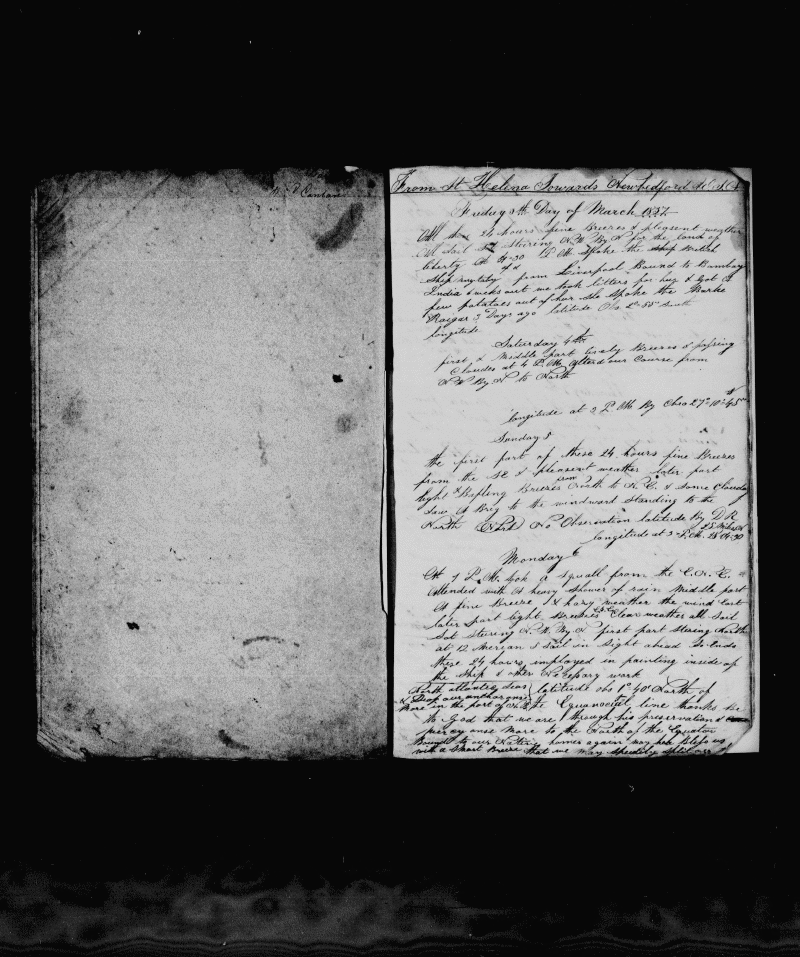 Canran
From St Helena Towards Newbedford U S A
Friday 3th Day of March 1854
All these 24 hours fine Breezes & pleasent weather
All Sail Set Stering N.W. By N for the land of
liberty At 4-30 P.M. Spoke the Ship British
Ship from Liverpool Bound to Bombay
India weeks out we took letters for her & Got A
few potatoes out of her She Spoke the Barke
3 Days ago latitude Obs 2°-55" South
longitude
Saturday 4th
first & Middle part lively Breezes & passing
Cloudes at 4 P.M. Alterd our Course from
N.W. By N to North
longitude at 3 P.M. By Chro 27°-10'-45"
Sunday 5
the first part of these 24 hours fine Breezes
from the SE & pleasent weather later part
light & Bafling Breezes from North to N.E. & some Cloudy
Saw A Brig to the windward Standing to the
North No Observation latitude By D R
28 Miles N
longitude at 3 P.M. 28
Monday 6
At 1 P.M. took A Squall from the E.N.E.
Attended with A heavy Shower of rain Middle part
A fine Breeze & hazy weather the wind East
later part light Breezes & Clear weather all Sail
Set Stering N.W. By N first part Stering North
at 12 Merican 1 Sail in Sight ahead So Ends
these 24 hours employed in painting inside of
the Ship & other Nesesary work
North atlantic
latitude obs 1° 40' North of
More in the port of
the Equanoctial line thanks be
to God that we are through his preservation &
mercy onse More to the North of the Equator
Bound to our Native homes again may he Bless us
with a Smart Breeze that we may Speedily